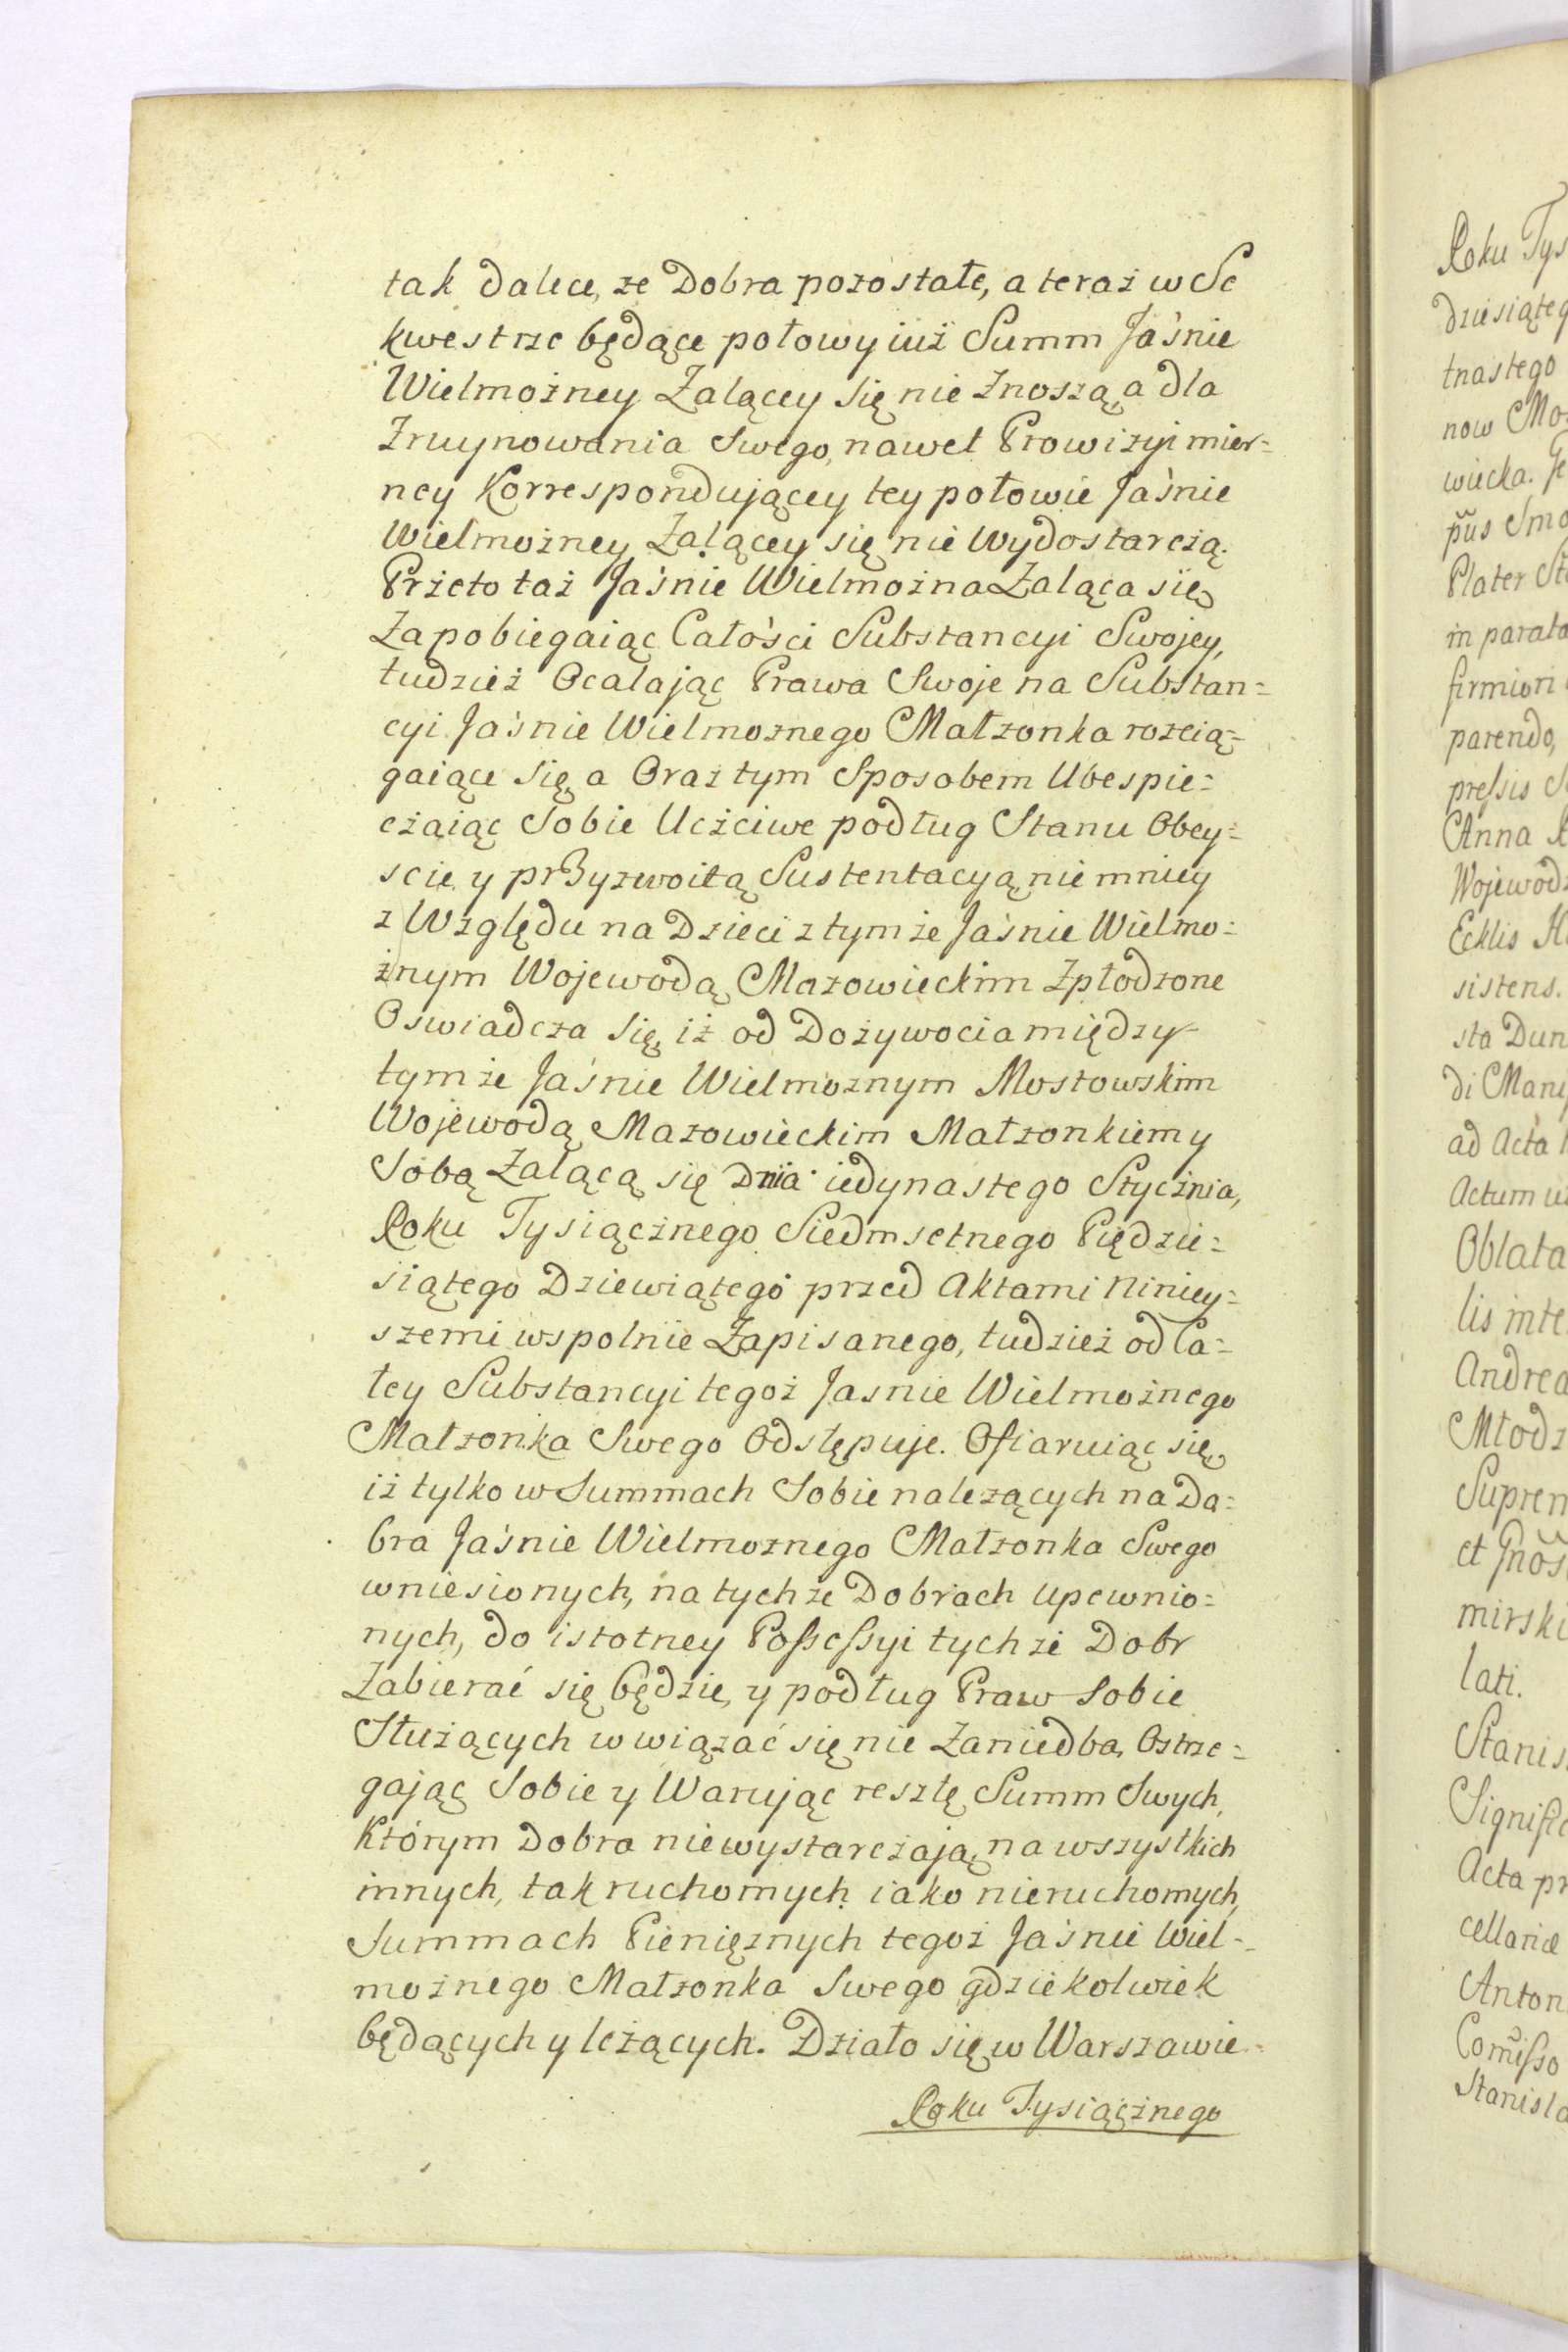 tak dalece, że Dobra pozostałe, a teraz w Se
kwestrze będące połowy iuż Summ Jaśnie
Wielmożney Żalącey się nie znoszą, a dla
Zruynowania Swego, nawet Prowizyi mier=
ney Korrespondującey tey połowie Jaśnie
Wielmożney Żalącey się nie wydostarczą.
Przeto taż Jaśnie Wielmożna Żaląca się
Zapobiegaiąc Całości Substancyi Swojey,
tudzież Ocalając Prawa Swoje na Substan=
cyi Jaśnie Wielmożnego Małżonka rozcią=
gaiące się, a Oraz tym Sposobem Ubespie=
czaiąc Sobie Uczciwe podług Stanu Obey=
scie, y przyzwoitą Sustentacyą, niemniey
z Względu na Dzieci z tymże Jaśnie Wielmo=
żnym Wojewodą Mazowieckim Zpłodzone
Oswiadcza się, iż od Dożywocia między
tymże Jaśnie Wielmożnym Mostowskim
Wojewodą Mazowieckim Małżonkiem y
Sobą Żalącą się Dnia iedynastego Stycznia,
Roku Tysiącznego Siedmsetnego Pięдzie=
siątego Dziewiątego przed Aktami Niniey=
szemi wspolnie Zapisanego, tudzież od Ca=
łey Substancyi tegoż Jasnie Wielmożnego
Małżonka Swego Odstępuje. Ofiaruiąc się,
iż tylko w Summach Sobie należących na Do=
bra Jaśnie Wielmożnego Małżonka Swego
wniesionych, na tychże Dobrach upewnio=
nych, do istotney Possessyi tychże Dobr
Zabierać się będzie, y podług Praw Sobie
Służących wwiązać się nie Zaniedba, Ostrze=
gając Sobie y Warując resztę Summ Swych,
Którym Dobra niewystarczają, na wszystkich
innych, tak ruchomych iako nieruchomych,
Summach Pieniężnych tegoż Jaśnie Wiel=
możnego Małżonka Swego gdziekolwiek
będących y leżących. Działo się w Warszawie
Roku Tysiącznego
Roku Tys
dziesiąteg
tnastego
now Mo
wiecka.
Plater
in parata
firmiori
parendo,
Anna
Wojewodz
sistens.
sta Dun
ad Acta
Actum
Oblata
lis inte
Andrea
Młodz
Suprem
mirski
lati.
Stanis
Signific
Acta pr
cellariæ
Anton
Stanisla